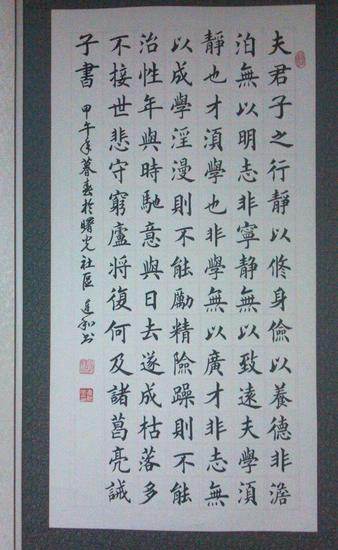 夫君子之行靜以修身儉以養德非澹
泊無以明志非寧静無以致遠夫學須
靜也才須學也非學無以廣才非志無
以成學淫漫則不能勵精險躁則不能
治性年與時馳意與日去遂成枯落多
不接世悲守窮廬將復何及諸葛亮誡
子書 甲午年暮春於曙光社區 和书